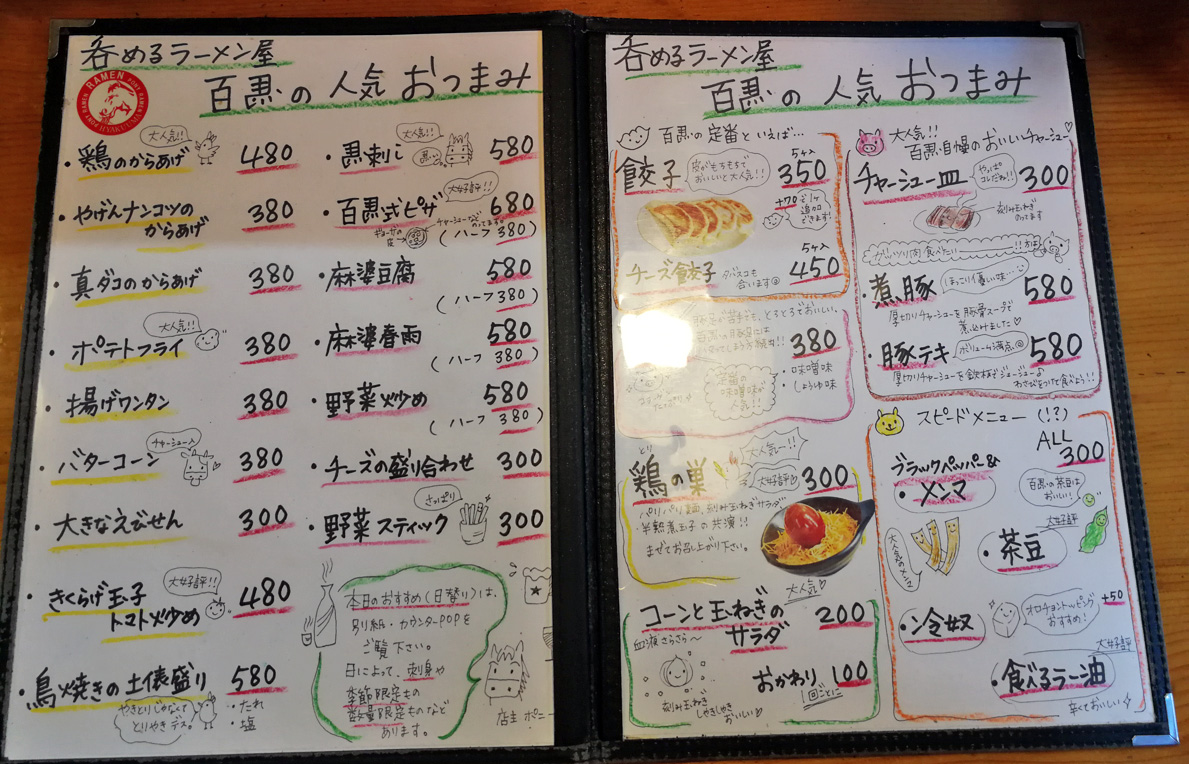 呑めるラーメン屋
百馬の人気おつまみ
RAMEN
HYAKUUMA
・鶏のからあげ 480
大人気!!
・やげんナンコツの
からあげ 380
・真ダコのからあげ 380
・ポテトフライ 380
大人気!!
・揚げワンタン 380
・バターコーン 380
チャーシュー入
・大きなえびせん 300
・きくらげ玉子
トマト炒め 480
大好評!!
・鳥焼きの土俵盛り 580
やきとりじゃなくて
とりやきデス。
・たれ
・塩
・馬刺し 580
大人気!!
・百馬式ピザ 680
大好評!!
ギョーザの
皮
チャーシューなど
のってます
(ハーフ 380)
・麻婆豆腐 580
(ハーフ 380)
・麻婆春雨 580
(ハーフ 380)
・野菜炒め 580
(ハーフ 380)
・チーズの盛り合わせ 300
・野菜スティック 300
さっぱり
本日のおすすめ(日替り)は、
別紙・カウンターPOPを
ご覧下さい。
日によって、刺身や
季節限定もの
数量限定ものなど
あります。
店主 ポニー
呑めるラーメン屋
百馬の人気おつまみ
百馬の定番といえば…
餃子 5ヶ入 350
皮がもちもちで
おいしいと大人気!!
+70で1ヶ
追加
できます!
チーズ餃子 5ヶ入 450
タバスコも
合います
とろとろでおいしい。
380
・味噌味
・しょうゆ味
定番の
味噌味が
人気!!
とり
鶏の巣 300
大人気!!
大好評
パリパリ麺、刻み玉ねぎサラダ、
半熟煮玉子の共演!!
まぜてお召し上がり下さい。
大人気
コーンと玉ねぎの
サラダ 200
血液さらさら～
おかわり 100
1回ごとに
刻み玉ねぎ
しゃきしゃき
おいしい
大人気!!
百馬自慢のおいしいチャーシュー
チャーシュー皿 300
やっぱ
コレだね!!
刻み玉ねぎ
のってます
ガッツリ肉食べたい
・煮豚 580
ほっこり優しい味
厚切りチャーシューを豚骨スープで
煮込みました
・豚テキ 580
ボリューム満点
厚切りチャーシューを鉄板でジュージュー♪
わさびをつけて食べよう!!
スピードメニュー(!?)
ALL
300
ブラックペッパー
・メンマ
大人気の
百馬の茶豆は
おいしい!
・茶豆
大好評
・冷奴
トッピング
おすすめ! +50
大好評
・食べるラー油
辛くておいしい